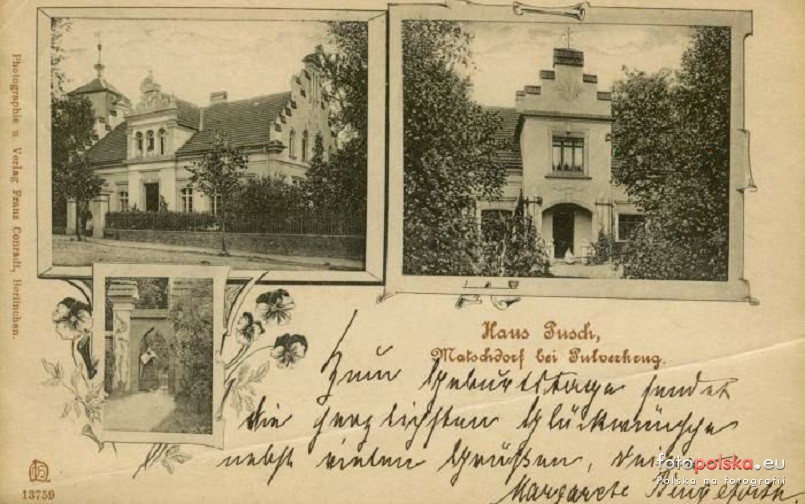 Photographie u. Verlag Franz Conradi, Berlinchen.
Haus Pusch,
Matschdorf bei Pulverkrug.
Zum Geburtstage sendet
die herzlichsten Glückwünsche
nebst vielen Grüßen, deine
Margarete
13759
fotopolska.eu
Polska na fotografii